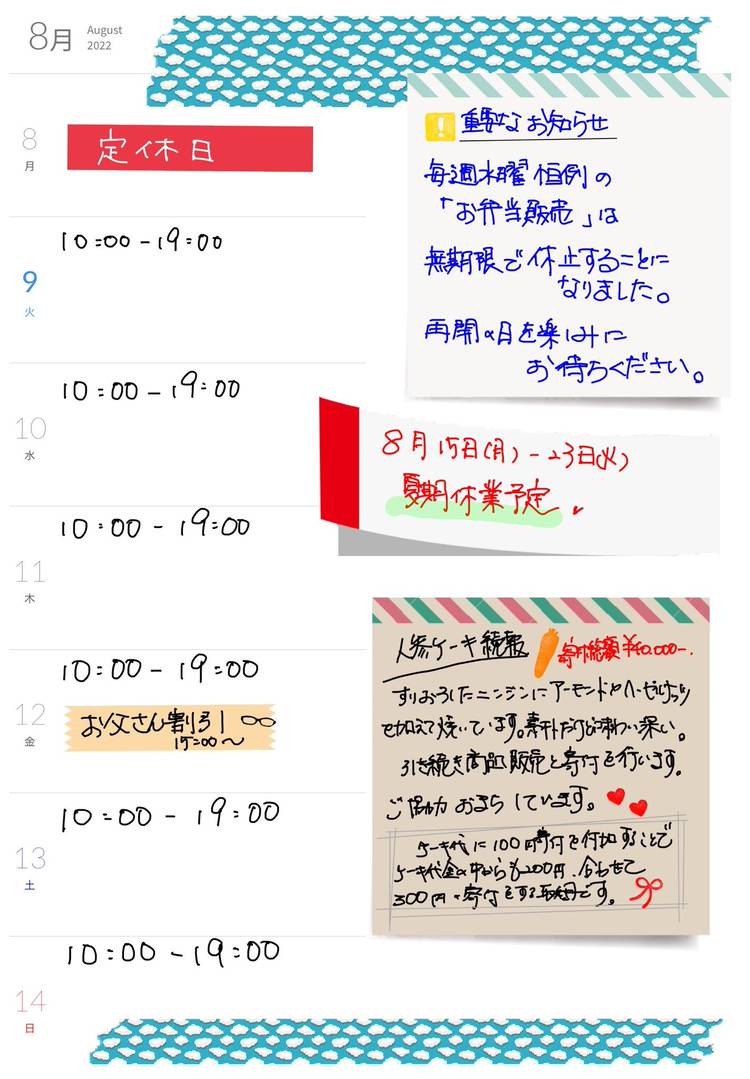 8月 August
2022
8
月
定休日
10:00-19:00
9
火
10:00-19:00
10
水
10:00-19:00
11
木
10:00-19:00
12
金
お父さん割引
15:00~
10:00-19:00
13
土
10:00-19:00
14
日
重要なお知らせ
毎週水曜恒例の
「お弁当販売」は
無期限で休止することに
なりました。
再開の日を楽しみに
お待ちください。
8月15日(月)-23日(火)
夏期休業予定
人参ケーキ続報
寄付総額¥60.000-.
すりおろしたニンジンにアーモンドやヘーゼルナッツ
を加えて焼いています。素朴だけど味わい深い。
引き続き商品販売と寄付を行います。
ご協力おまちしています。
ケーキ代に100円寄付を付加することで
ケーキ代金の中からも200円、合わせて
300円の寄付をする取組です。